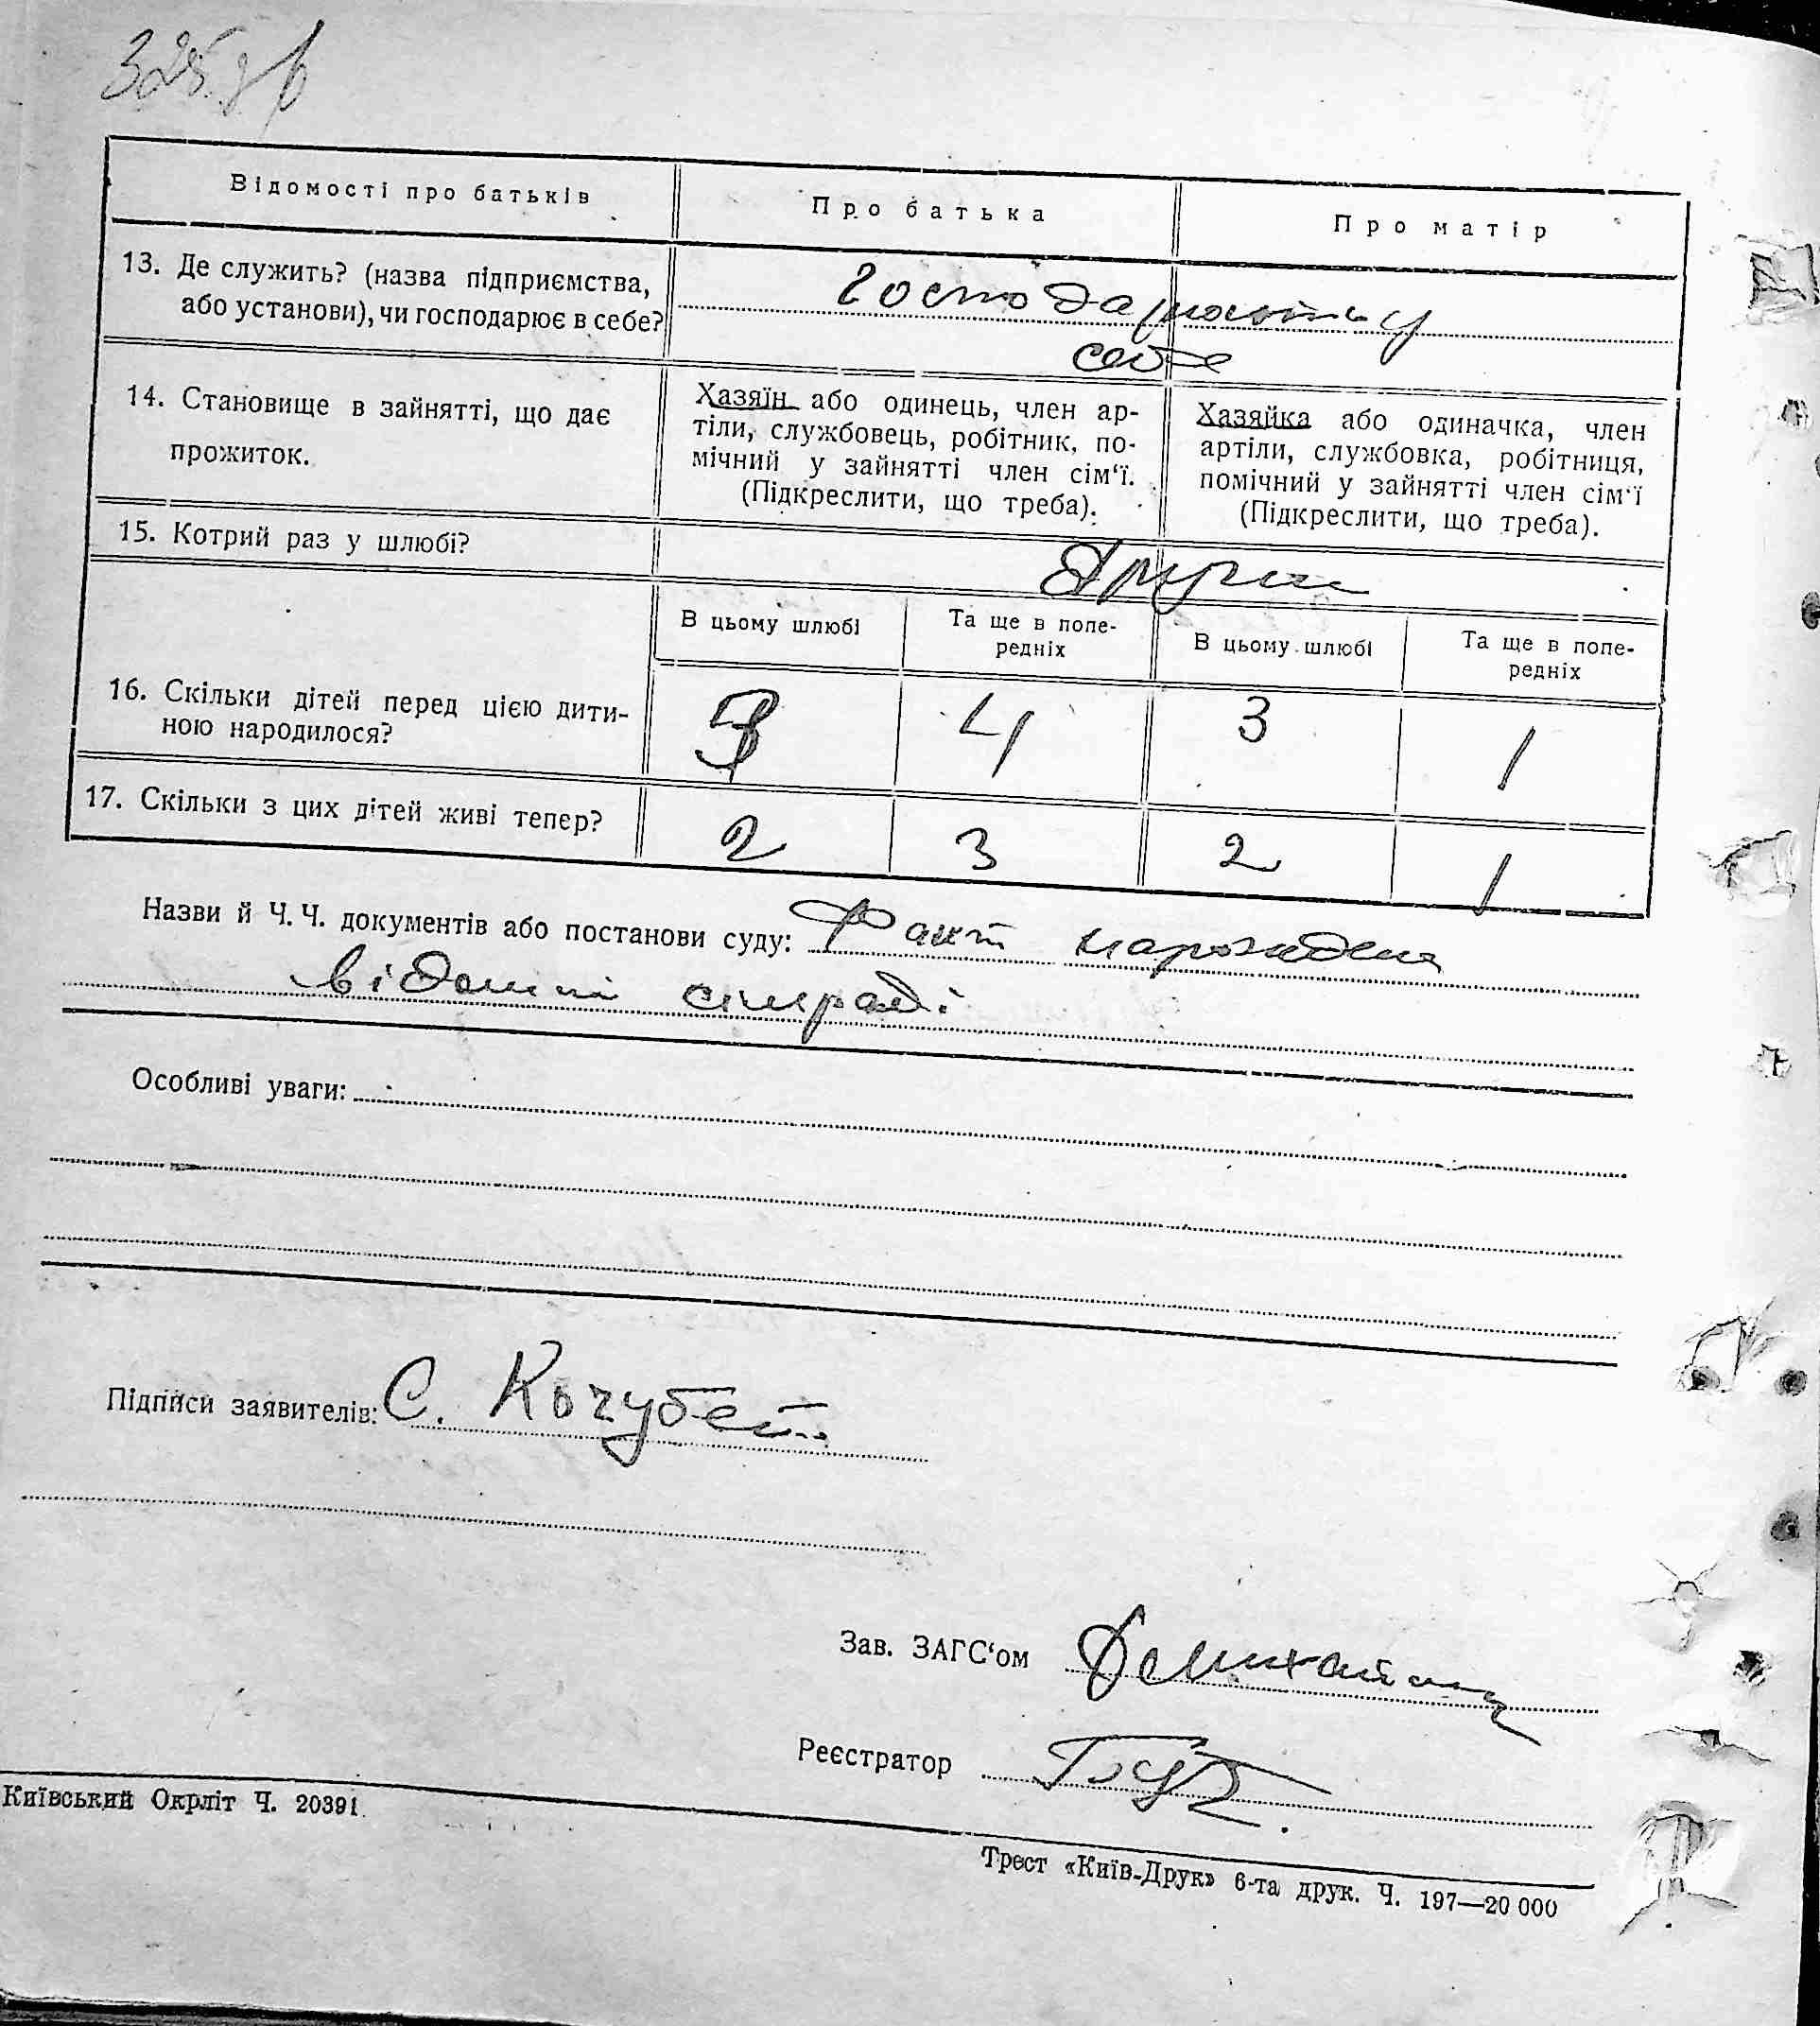 325 зв
Відомості про батьків
Про батька
Про матір
13. Де служить? (назва підприємства,
або установи), чи господарює в себе?
Господарюють у
себе
14. Становище в зайнятті, що дає
прожиток.
Хазяїн або одинець, член ар-
тіли, службовець, робітник, по-
мічний у зайнятті член сім‘ї.
(Підкреслити, що треба).
Хазяйка або одиначка, член
артіли, службовка, робітниця,
помічний у зайнятті член сім‘ї
(Підкреслити, що треба).
15. Котрий раз у шлюбі?
Други
В цьому шлюбі
Та ще в попе-
редніх
В цьому шлюбі
Та ще в попе-
редніх
16. Скільки дітей перед цією дити-
ною народилося?
3 4 3 1
17. Скільки з цих дітей живі тепер?
2 3 2 1
Назви й Ч. Ч. документів або постанови суду: Факт народження
відомий сільраді
Особливі уваги:
Підписи заявителів: С. Кочубей
Зав. ЗАГС‘ом
Реєстратор
Київський Окрліт Ч. 20391
Трест «Київ-Друк» 6-та друк. Ч. 197—20 000